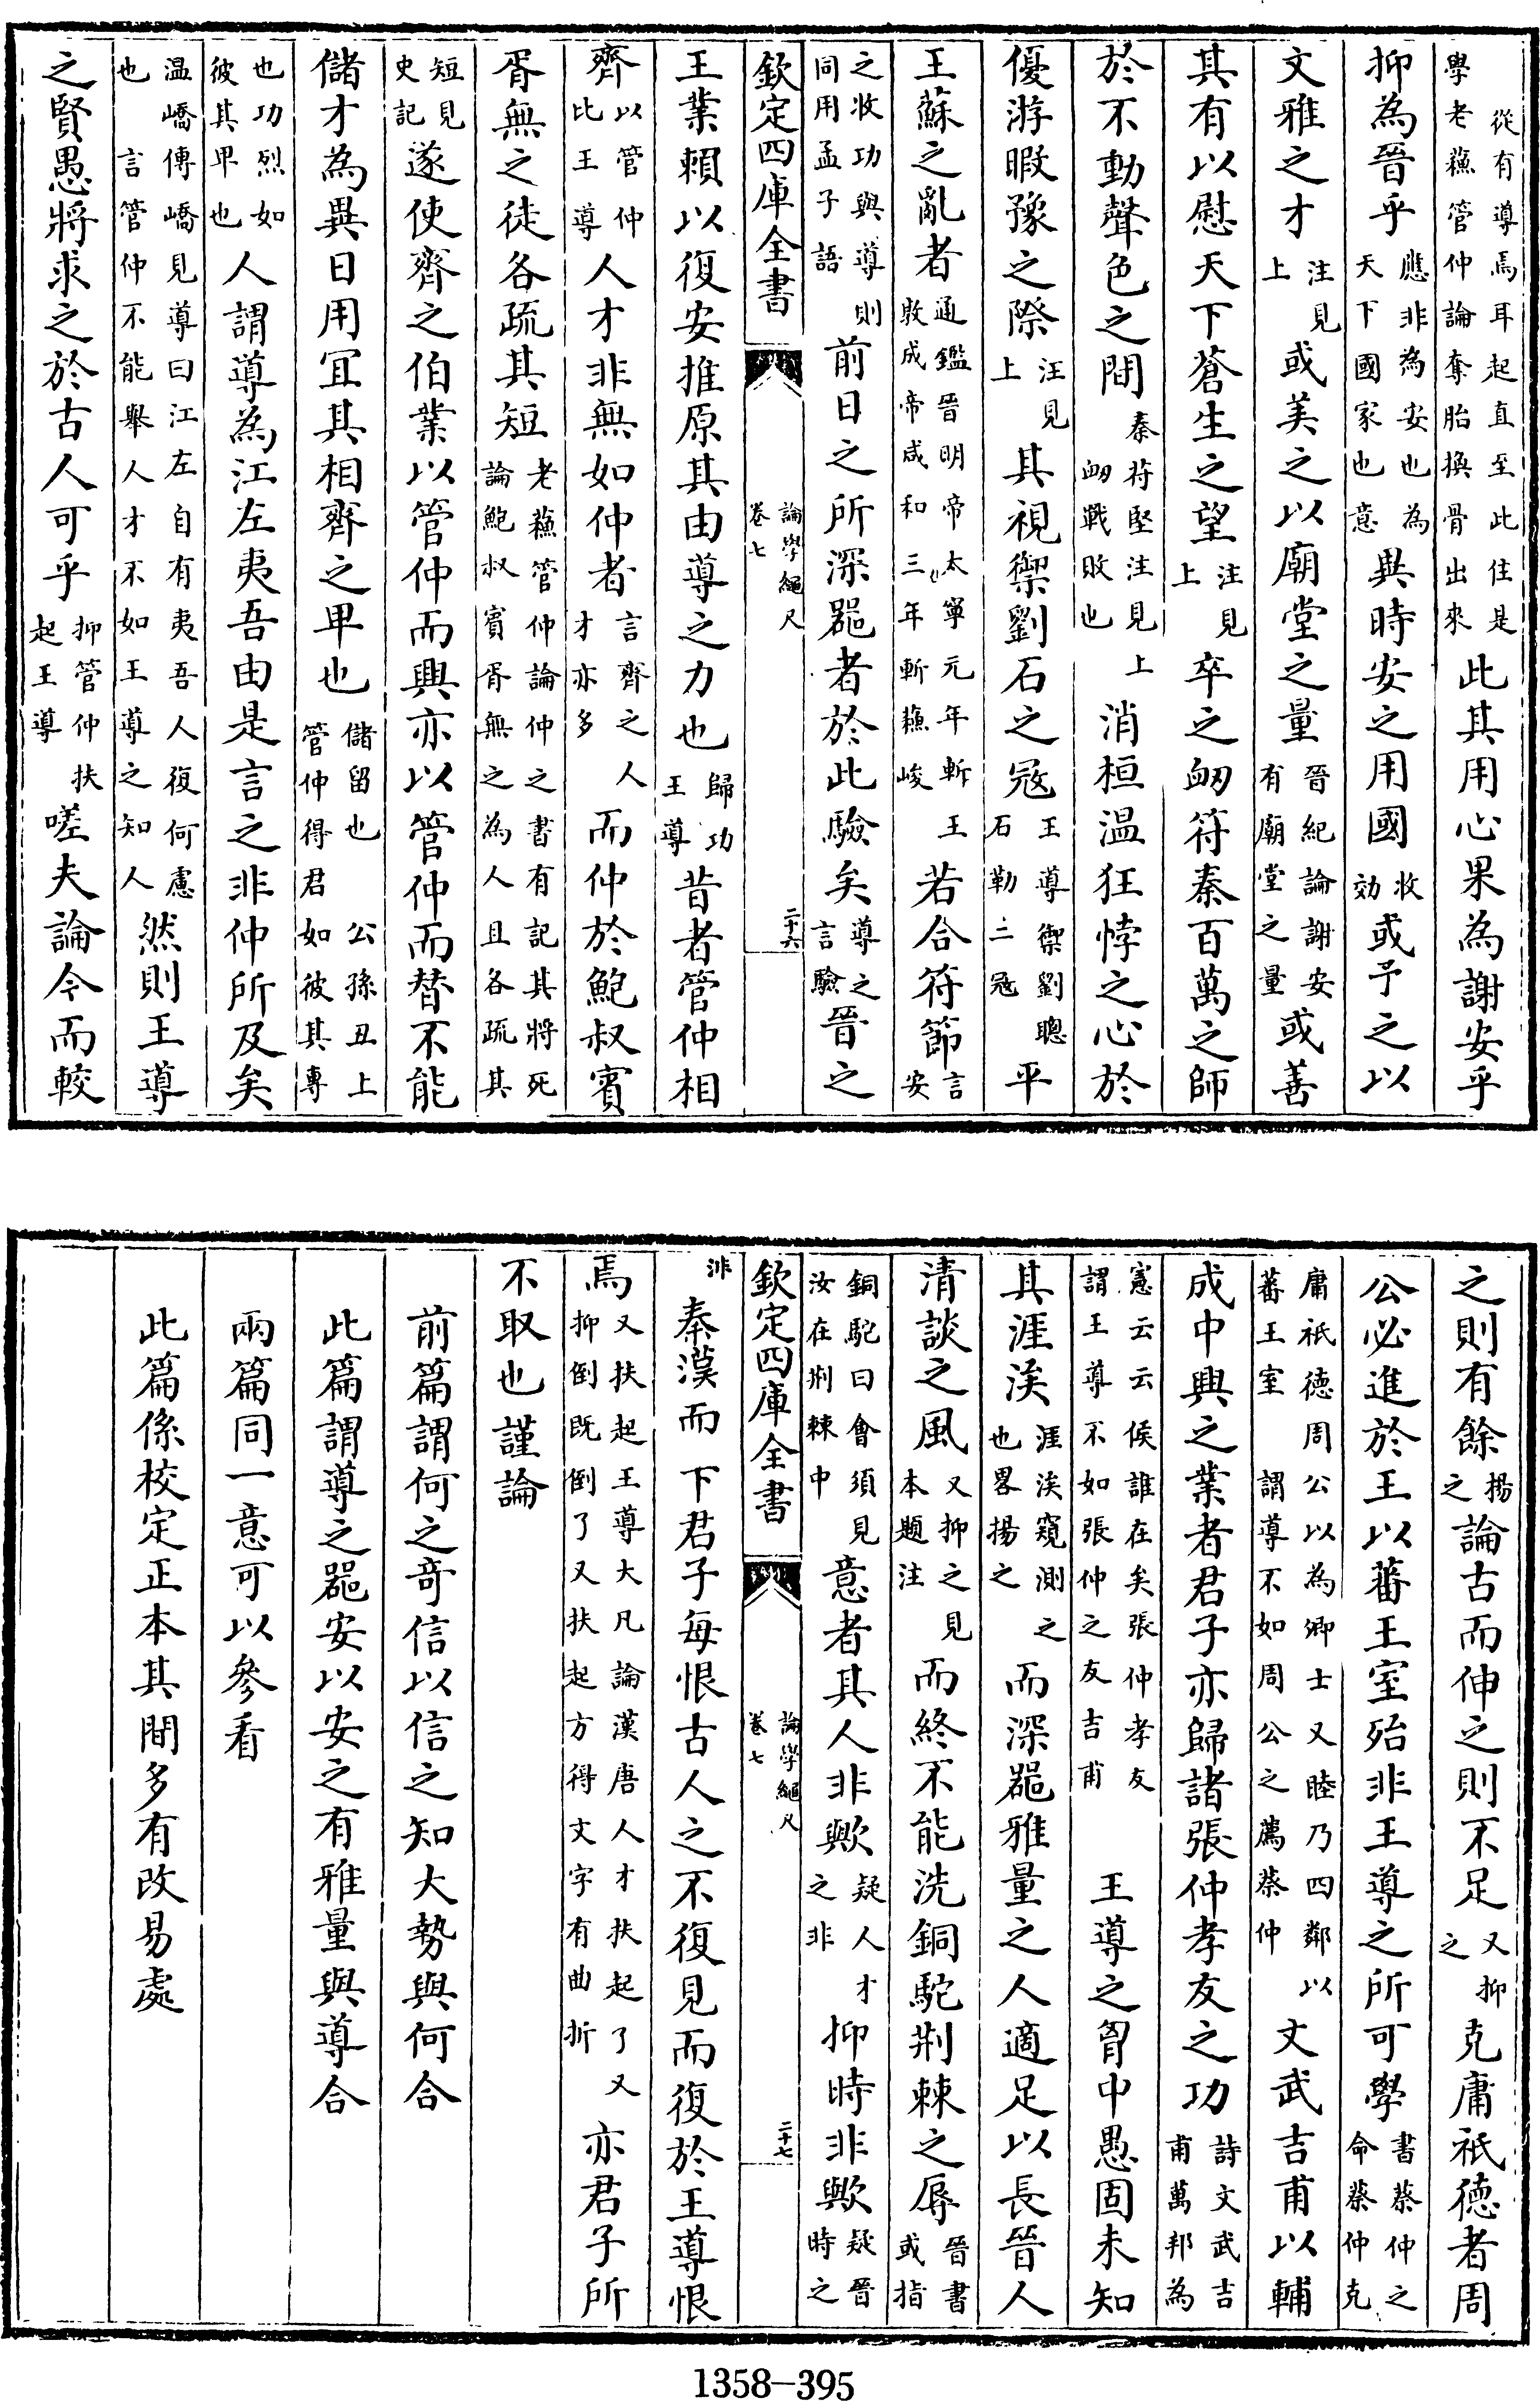 從有導焉耳起直至此住是學老蘓管仲論奪胎換骨出來此其用心果為謝安乎
抑為晉乎應非為安也為天下國家也意異時安之用國收効或予之以
文雅之才注見上或美之以廟堂之量晉紀論謝安有廟堂之量或善
其有以慰天下蒼生之望注見上卒之衂符秦百萬之師
於不動聲色之間秦苻堅注見上衂戰敗也消桓温狂悖之心於
優游暇豫之際汪見上其視禦劉石之寇王導禦劉聰石勒二寇平
王蘇之亂者通鑑晉明帝太寧元年斬王敦成帝咸和三年斬蘓峻若合符節言安
之收功與導則同用孟子語前日之所深噐者於此驗矣導之言驗晉之
欽定四庫全書 論學繩尺卷七 二十六
王業頼以復安推原其由導之力也歸功王導昔者管仲相
齊以管仲比王導人才非無如仲者言齊之人才亦多而仲於鮑叔賓
胥無之徒各疏其短老蘓管仲論仲之書有記其將死論鮑叔賓胥無之為人且各疏其
短見史記遂使齊之伯業以管仲而興亦以管仲而替不能
儲才為異日用宜其相齊之卑也儲留也公孫丑上管仲得君如彼其專
也功烈如彼其卑也人謂導為江左夷吾由是言之非仲所及矣
温嶠傳嶠見導曰江左自有夷吾人復何慮也言管仲不能舉人才不如王導之知人然則王導
之賢愚將求之於古人可乎抑管仲扶起王導嗟夫論今而較
之則有餘揚之論古而伸之則不足又抑之克庸祇德者周
公必進於王以蕃王室殆非王導之所可學書蔡仲之命蔡仲克
庸祇徳周公以為卿士又睦乃四鄰以蕃王室謂導不如周公之薦蔡仲文武吉甫以輔
成中興之業者君子亦歸諸張仲孝友之功詩文武吉甫萬邦為
憲云云侯誰在矣張仲孝友謂王導不如張仲之友吉甫王導之胷中愚固未知
其涯涘涯涘窺測之也畧揚之而深噐雅量之人適足以長晉人
清談之風又抑之見本題注而終不能洗銅駝荆棘之辱晉書或指
銅駝曰會須見汝在荆棘中意者其人非歟疑人才之非抑時非歟疑晉時之
欽定四庫全書 論學繩尺卷七 二十七
非秦漢而下君子每恨古人之不復見而復於王導恨
焉又扶起王導大凡論漢唐人才扶起了又抑倒既倒了又扶起方得文字有曲折亦君子所
不取也謹論
前篇謂何之竒信以信之知大勢與何合
此篇謂導之噐安以安之有雅量與導合
兩篇同一意可以參看
此篇係校定正本其間多有改易處
1358-395